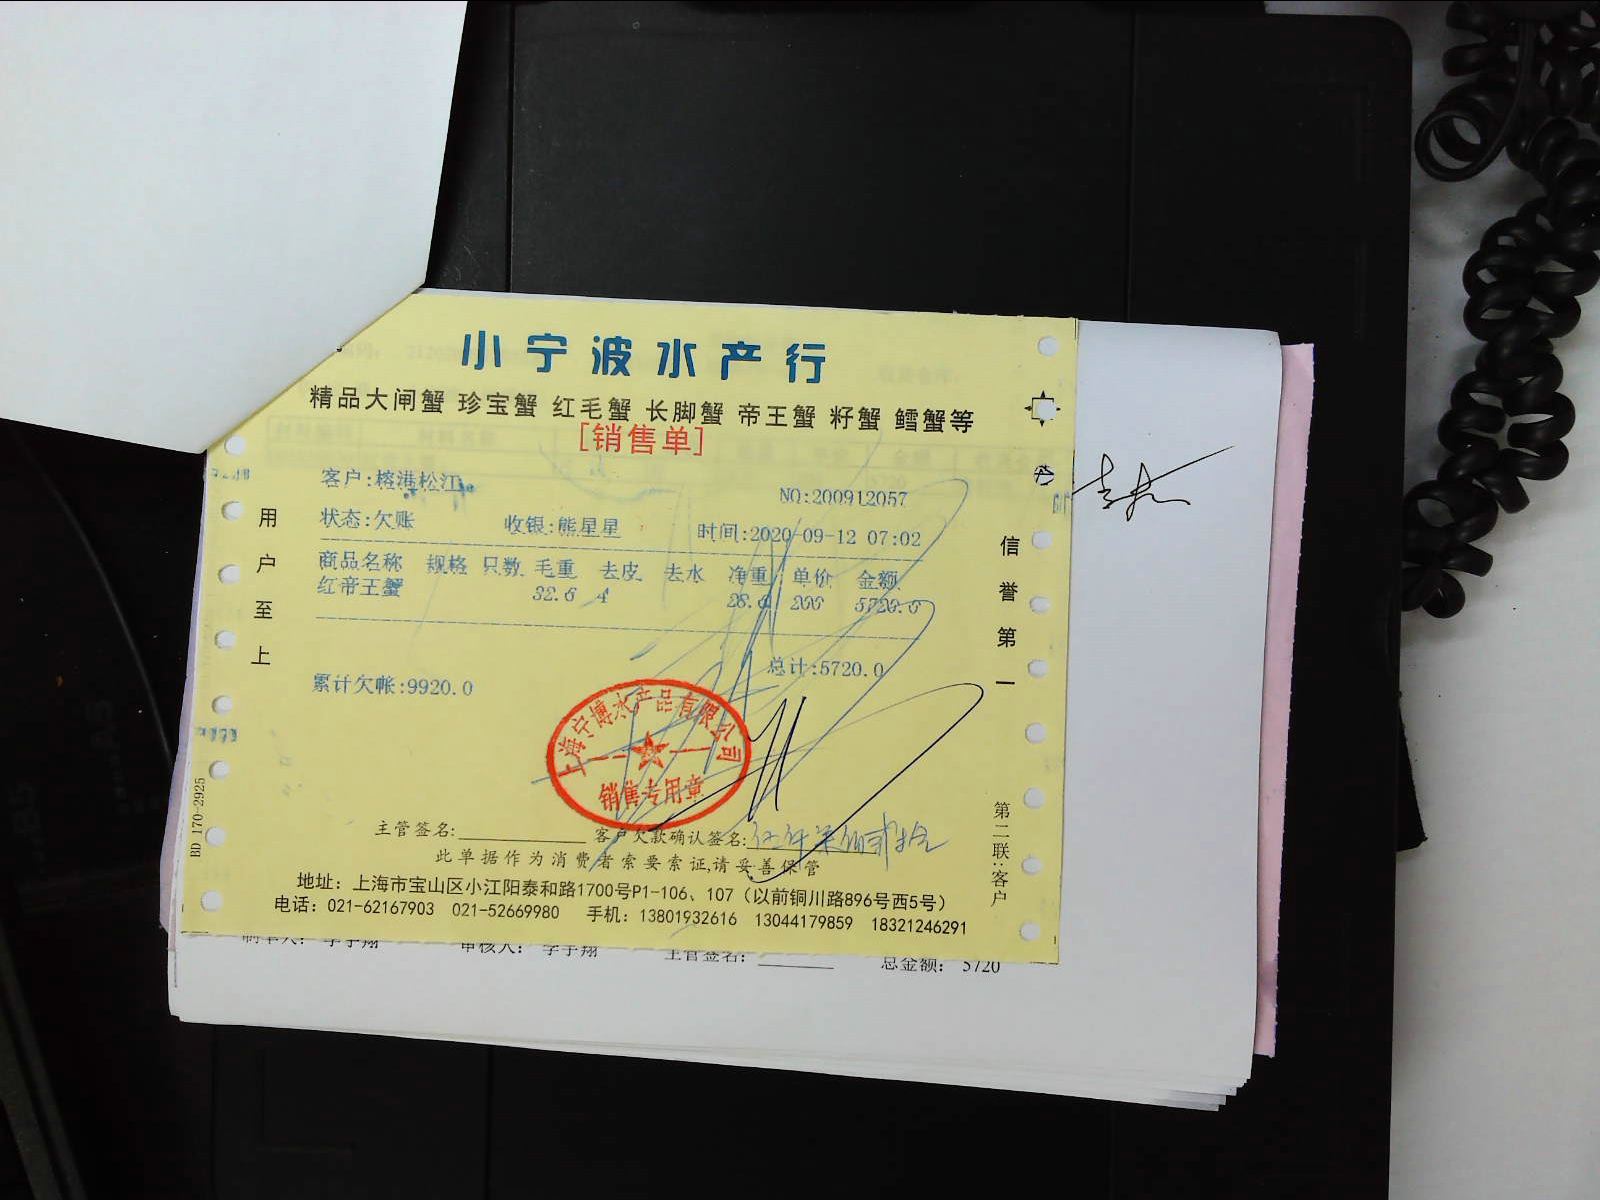 小宁波水产行
精品大闸蟹 珍宝蟹 红毛蟹 长脚蟹 帝王蟹 籽蟹 鳕蟹等
[销售单]
客户:榕港松江
NO:200912057
状态:欠账 收银:熊星星 时间:2020-09-12 07:02
商品名称 规格 只数 毛重 去皮 去水 净重 单价 金额
红帝王蟹 32.6 4 28.6 200 5720.0
总计:5720.0
累计欠帐:9920.0
上海宁博水产品有限公司
销售专用章
主管签名: 客户欠款确认签名:伍仟柒佰贰拾
此单据作为消费者索要索证,请妥善保管
地址：上海市宝山区小江阳泰和路1700号P1-106、107（以前铜川路896号西5号）
电话：021-62167903 021-52669980 手机：13801932616 13044179859 18321246291
用户至上
信誉第一
第二联:客户
BD 170-2925
制单人： 李宇翔 审核人： 李宇翔 主管签名： 总金额： 5720